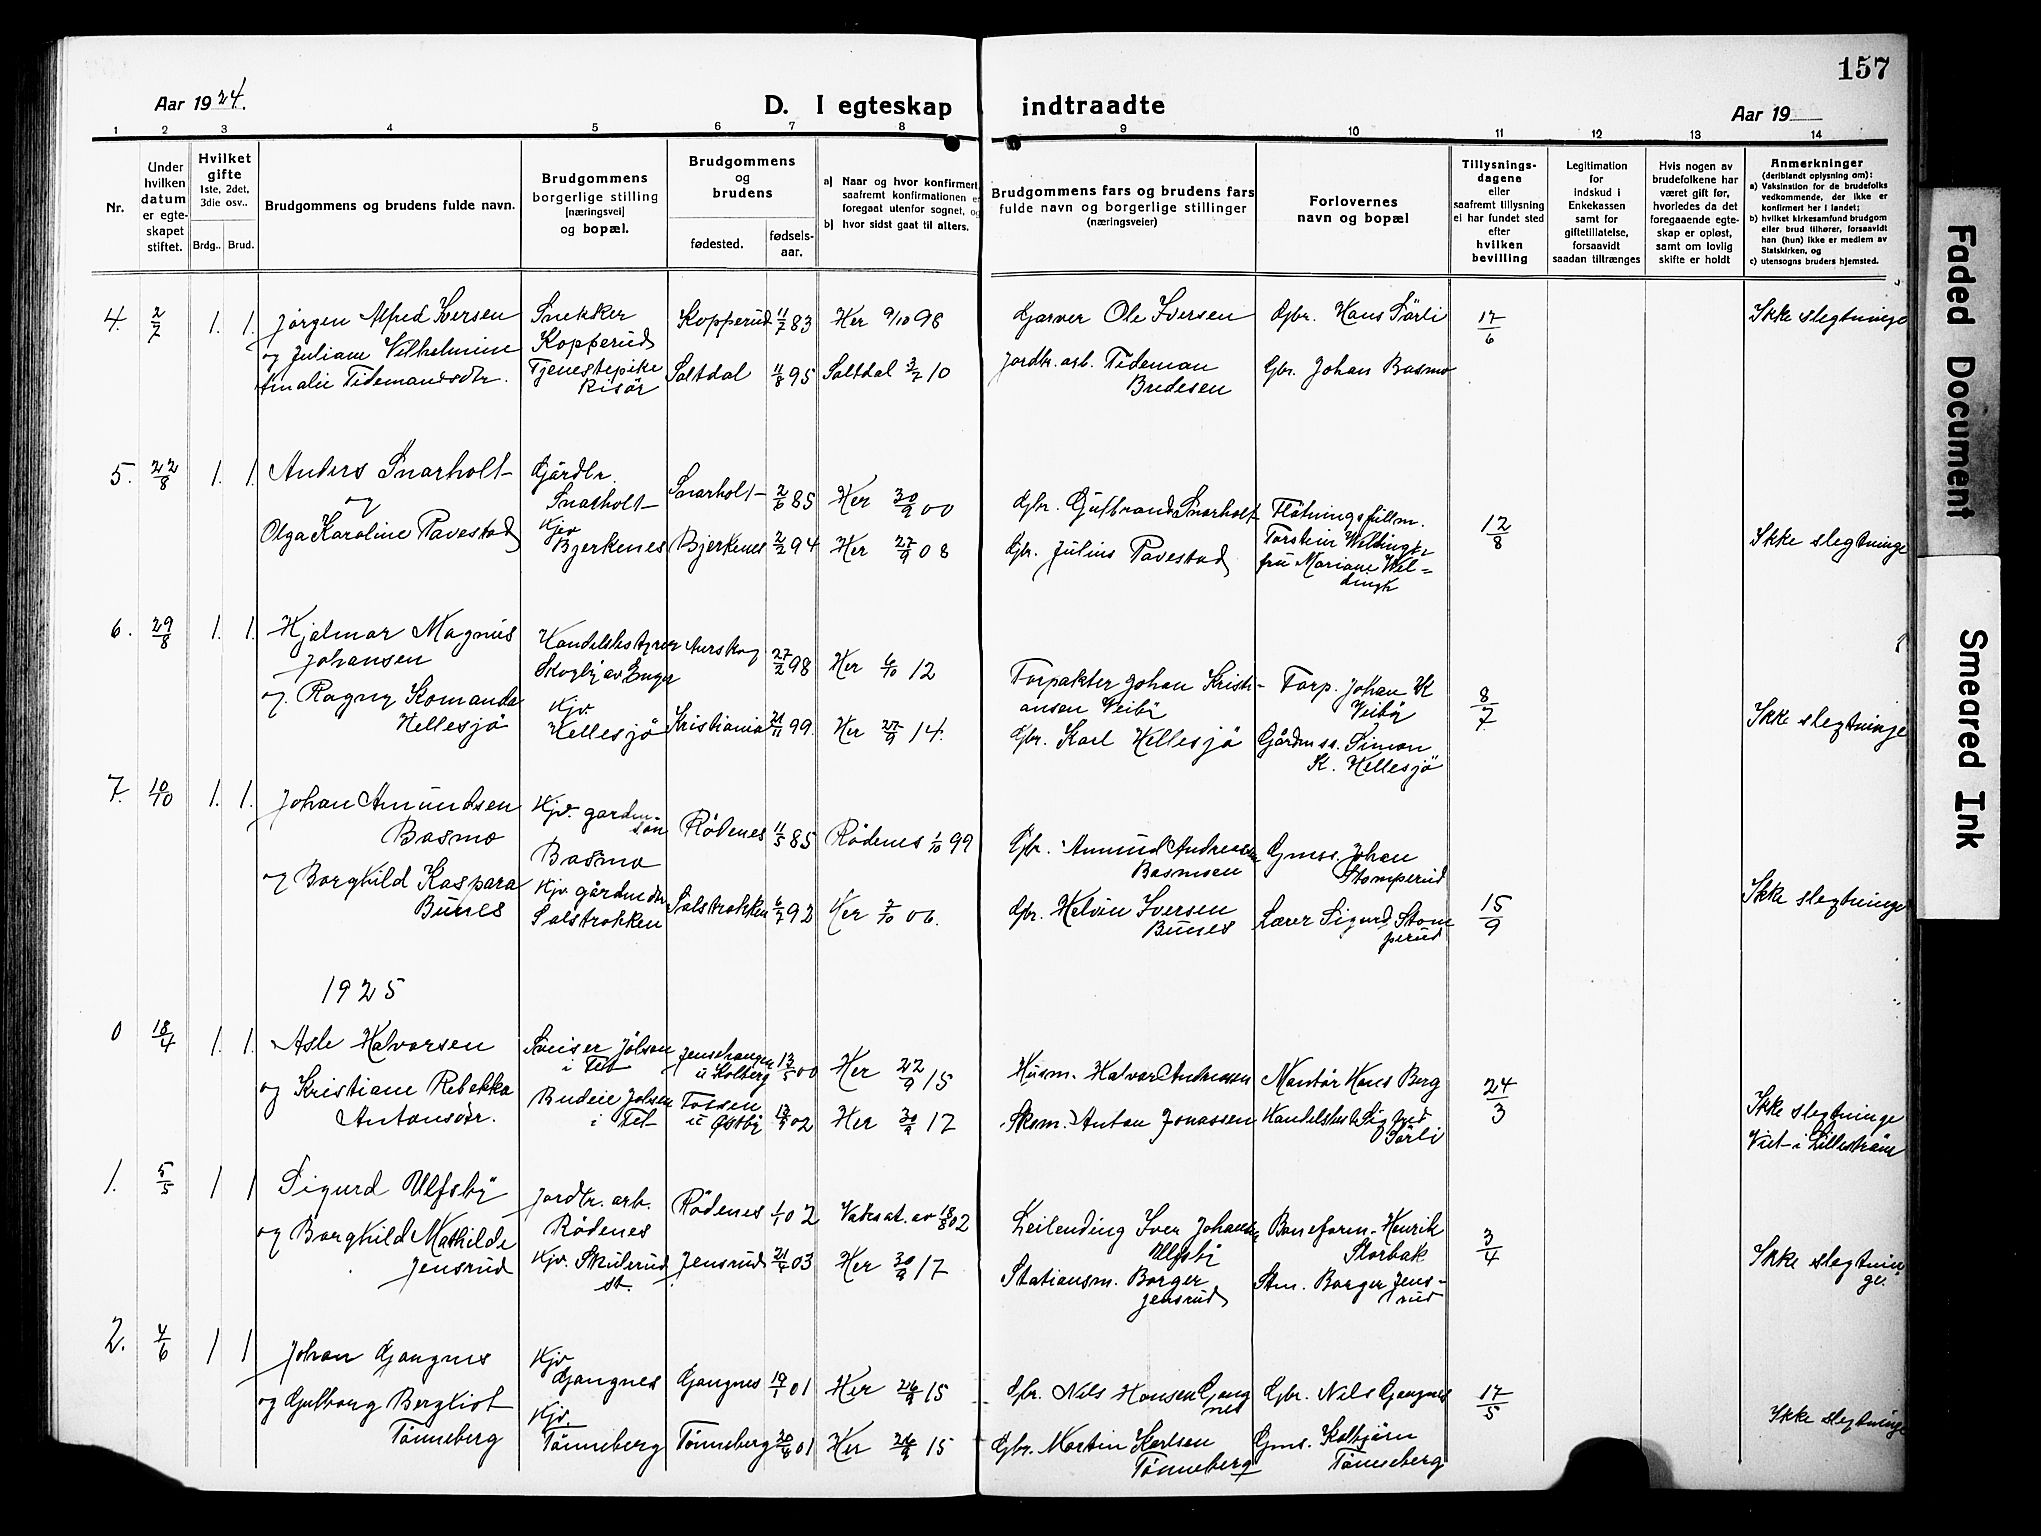 157
Aar 1924.
D. I egteskap indtraadte
Aar 19
1 2 3 4 5 6 7 8 9 10 11 12 13 14
Nr.
Under hvilken datum er egteskapet stiftet.
Hvilket gifte
1ste, 2det, 3die osv..
Brdg.. Brud.
Brudgommens og brudens fulde navn.
Brudgommens borgerlige stilling [næringsvei] og bopæl.
Brudgommens og brudens
fødested.
fødsels-aar.
a) Naar og hvor konfirmert, saafremt konfirmationen er foregaat utenfor sognet, og
b) hvor sidst gaat til alters.
Brudgommens fars og brudens fars fulde navn og borgerlige stillinger (næringsveier)
Forlovernes navn og bopæl
Tillysnings-dagene eller saafremt tillysning ei har fundet sted efter hvilken bevilling
Legitimation for indskud i Enkekassen samt for giftetillatelse, forsaavidt saadan tiltrænges
Hvis nogen av brudefolkene har været gift før, hvorledes da det foregaaende egteskap er opløst, samt om lovlig skifte er holdt
Anmerkninger (deriblandt oplysning om):
a) Vaksination for de brudefolks vedkommende, der ikke er konfirmert her i landet;
b) hvilket kirkesamfund brudgom eller brud tilhører, forsaavidt han (hun) ikke er medlem av Statskirken, og
c) utensogns bruders hjemsted.
4. 2/7 1. 1. Jørgen Alfred Iversen
og Juliane Vilhelmine
Amalie Tidemandsdtr.
Snekker
Kopperud
Tjenestepike
Risør
Kopperud 11/7 83 Her 9/10 98
Saltdal 11/8 95 Saltdal 3/7 10
Garver Ole Iversen
Jordbr. arb. Tideman
Bredesen
Gbr. Hans Sørli
Gbr. Johan Basmo
17/6
Ikke slegtninge
5. 22/8 1. 1. Anders Snarholt
og
Olga Karoline Tavestad
Gårdbr.
Snarholt
Hjv.
Bjerkenes
Snarholt 2/6 85 Her 30/9 00
Bjerkenes 2/2 94 Her 27/9 08
Gbr. Gulbrand Snarholt
Gbr. Julius Tavestad
Fløtningsfullm.
Torstein
fru Mariane Wel=
dingh
12/8
Ikke slegtninge
6. 29/8 1. 1. Hjalmar Magnus
Johansen
og Ragny Komanda
Hellesjø
Handelsbestyrer
Skogby av Enger
Hjv.
Hellesjø
Aurskog 27/2 98 Her 6/10 12
Kristiania 21/11 99. Her 27/9 14.
Torpakter Johan Kristi-
ansen Veiby
Gbr. Karl Hellesjø
Torp. Johan K
Veiby
Gårdm.ss. Simon
K. Hellesjø
8/7
Ikke slegtninge
7. 10/10 1. 1. Johan Amundsen
Basmo
og Borghild Kaspara
Bunes
Hjv. gardm.
søn
Basmo
Hjv. gårdm.dtr
Salstrokken
Rødenes 11/5 85 Rødenes 1/10 99
Salstrokken 6/7 92 Her 7/10 06.
Gbr. Amund Andreassen
Basmoen
Gbr. Helvin Iversen
Bunes
Gmss. Johan
Stomperud
Lærer Sigurd Stom
perud
15/9
Ikke slegtninge
1925
0 18/4 1. 1. Asle Halvorsen
og Kristiane Rebekka
Antonsdtr.
Sveiser Jølsen
i Fet
Budeie Jølsen
i Fet
Jensehaugen
u Kolberg 13/5 00 Her 22/9 15
Tossen
u Østby 02 Her 30/9 17
Husm. Halvor Andreassen
Skom. Anton Jonassen
Montør Hans Berg
Handelsbest. Sigurd
Sørli
24/3
Ikke slegtninge
Viet i Lillestrøm
1. 5/5 1 1 Sigurd Ulfsby
og Borghild Mathilde
Jensrud
Jordbr. arb.
Rødenes
Hjv. Skulerud
st.
Rødenes 1/1 02 Vaksat. av 18/8 02
Jensrud 21/4 03 Her 30/9 17
Leilending Iver Johansen
Ulfsby
Stationsm. Borger
Jensrud
Baneform. Henrik
Storbak
Stm. Borger Jens-
rud
3/4
Ikke slegtnin
ge.
2. 7/6 1 1 Johan Gangnes
og Gulborg Bergliot
Tønneberg
Hjv
Gangnes
Hjv.
Tønneberg
Gangnes 19/1 01 Her 26/9 15
Tønneberg 20/8 01 Her 26/9 15
Gbr. Nils Hansen Gang
nes
Gbr. Martin Karlsen
Tønneberg
Gbr. Nils Gangnes
Gms. Kolbjørn
Tønneberg
17/5
Ikke slegtninge
Faded Document
Smeared Ink